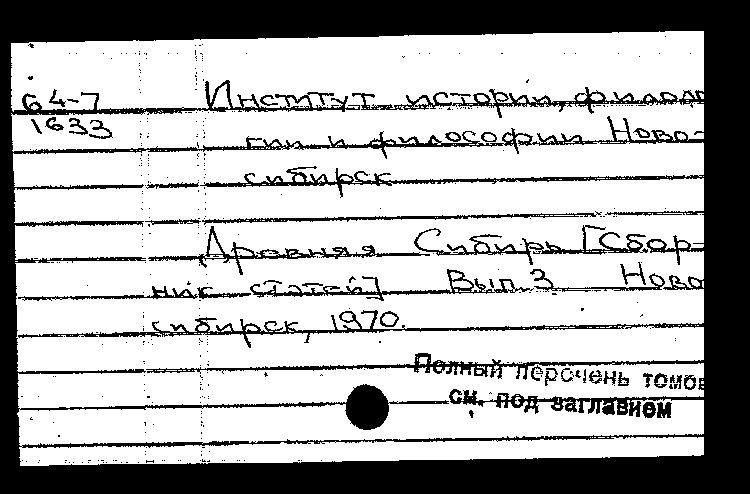 64-7 Институт истории, филоло
1633
гии и философии Ново-
сибирск
Древняя Сибирь [Сбор-
ник статей] Вып. 3 Ново
сибирск, 1970.
Полный перечень томов
см. под заглавием